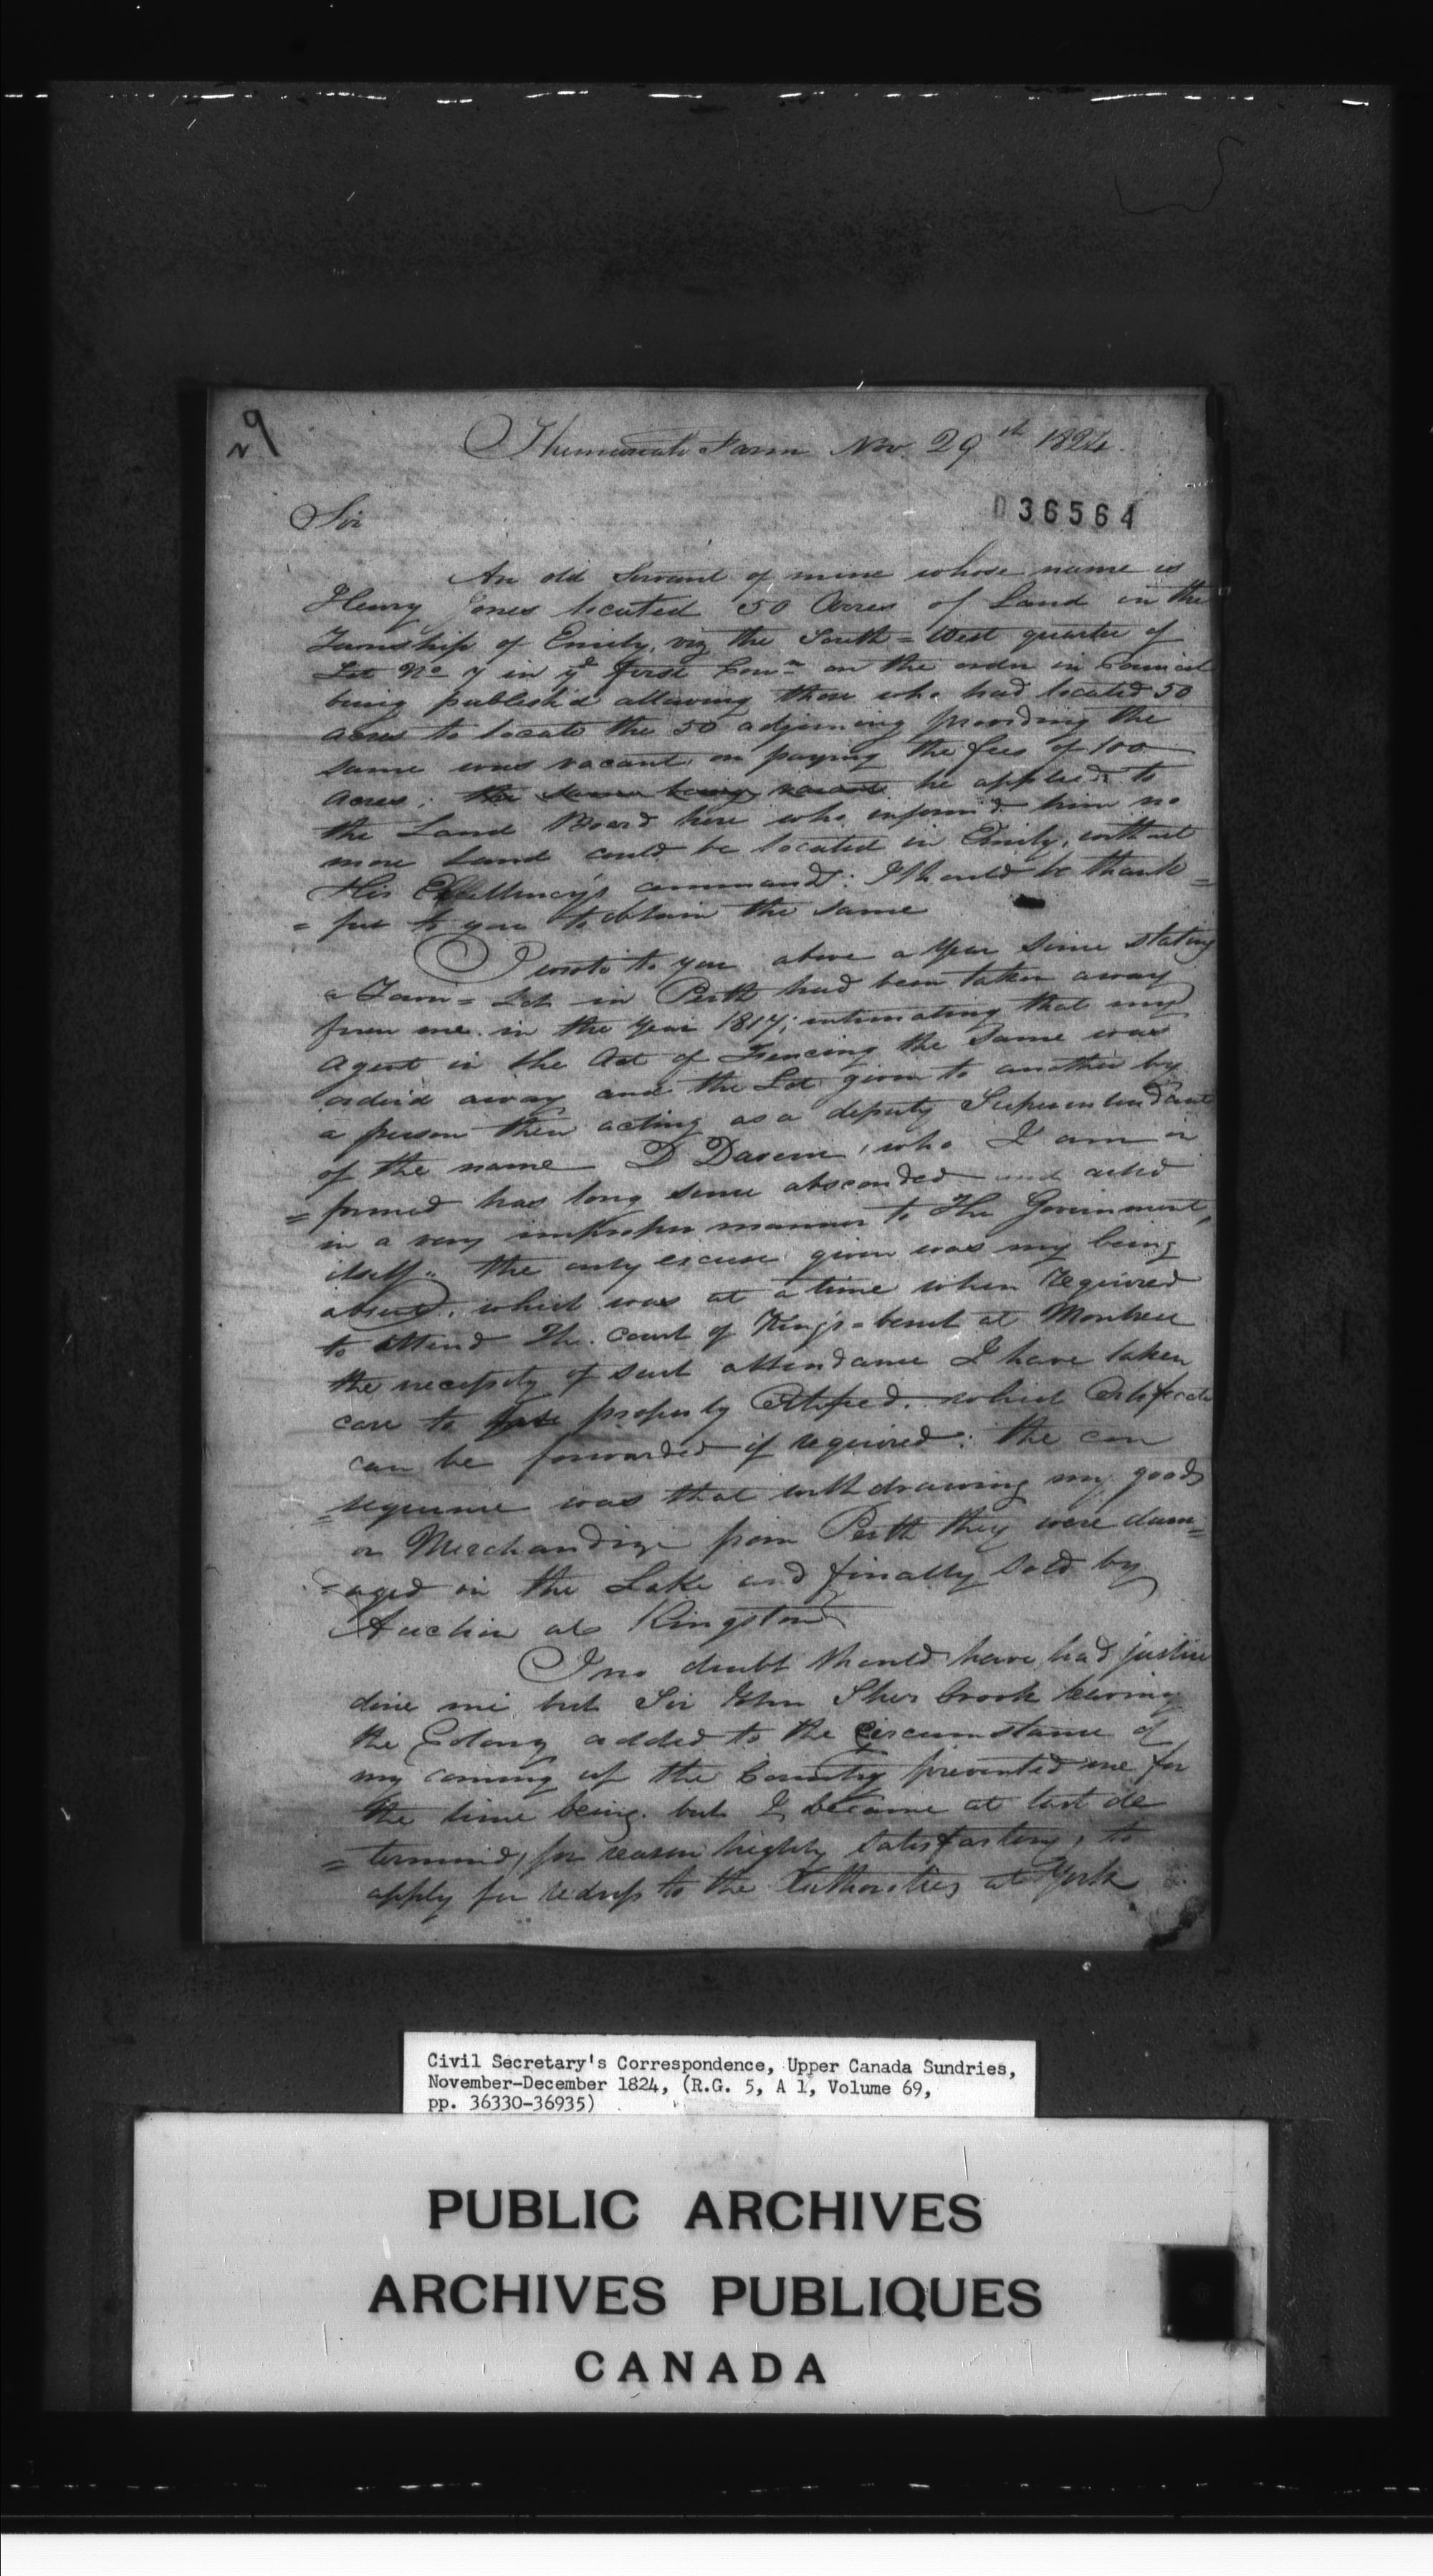 29
Farm Nov. 29th 1824.
Sir
036564
An old Servant of mine whose name is
Henry Jones located 50 Acres of Land in the
Township of Emily, viz the South=West quarter of
Lot No 7 in ye first Con.n on the order in Council
being publish'd allowing those who had located 50
acres to locate the 50 adjoining providing the
same was vacant, on paying the fees of 100
acres; the same being vacant he applied to
the Land Board here who inform'd him no
more Land could be located in Emily, without
His Excellency's command: I should be thank=
=ful to you to obtain the same
I wrote to you above a Year since stating
a Town=Lot in Perth had been taken away
from me in the Year 1817; intimating that my
agent in the Act of Fencing the same was
order'd away and the Lot given to another by
a person then acting as a deputy Superintendant
of the name D Davern, who I am in
=formed has long since absconded and acted
in a very improper manner to the Government,
itself" the only excuse given was my being
absent, which was at a time when required
to attend The Court of King's=bench at Montreal
the necessity of such attendance I have taken
care to properly Certified, which Certificate
can be forwarded if required: the con
=sequence was that withdrawing my goods
or Merchandize from Perth they were dam=
=aged in the Lake and finally sold by
Auction at Kingston
I no doubt should have had justice
done me but Sir John Sherbrook leaving
the Colony added to the Circumstance of
my coming up the Country prevented me for
the time being. but I became at last de
=termined, for reason highly satisfactory, to
apply for redress to the Authorities at York
Civil Secretary's Correspondence, Upper Canada Sundries,
November-December 1824, (R.G. 5, A 1, Volume 69,
pp. 36330-36935)
PUBLIC ARCHIVES
ARCHIVES PUBLIQUES
CANADA